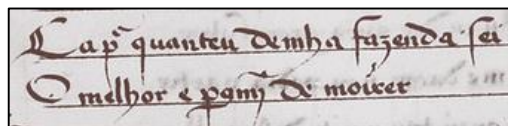 Ca p̃ quanteu demha fazenda sei
O melhor e pamĩ de moirer